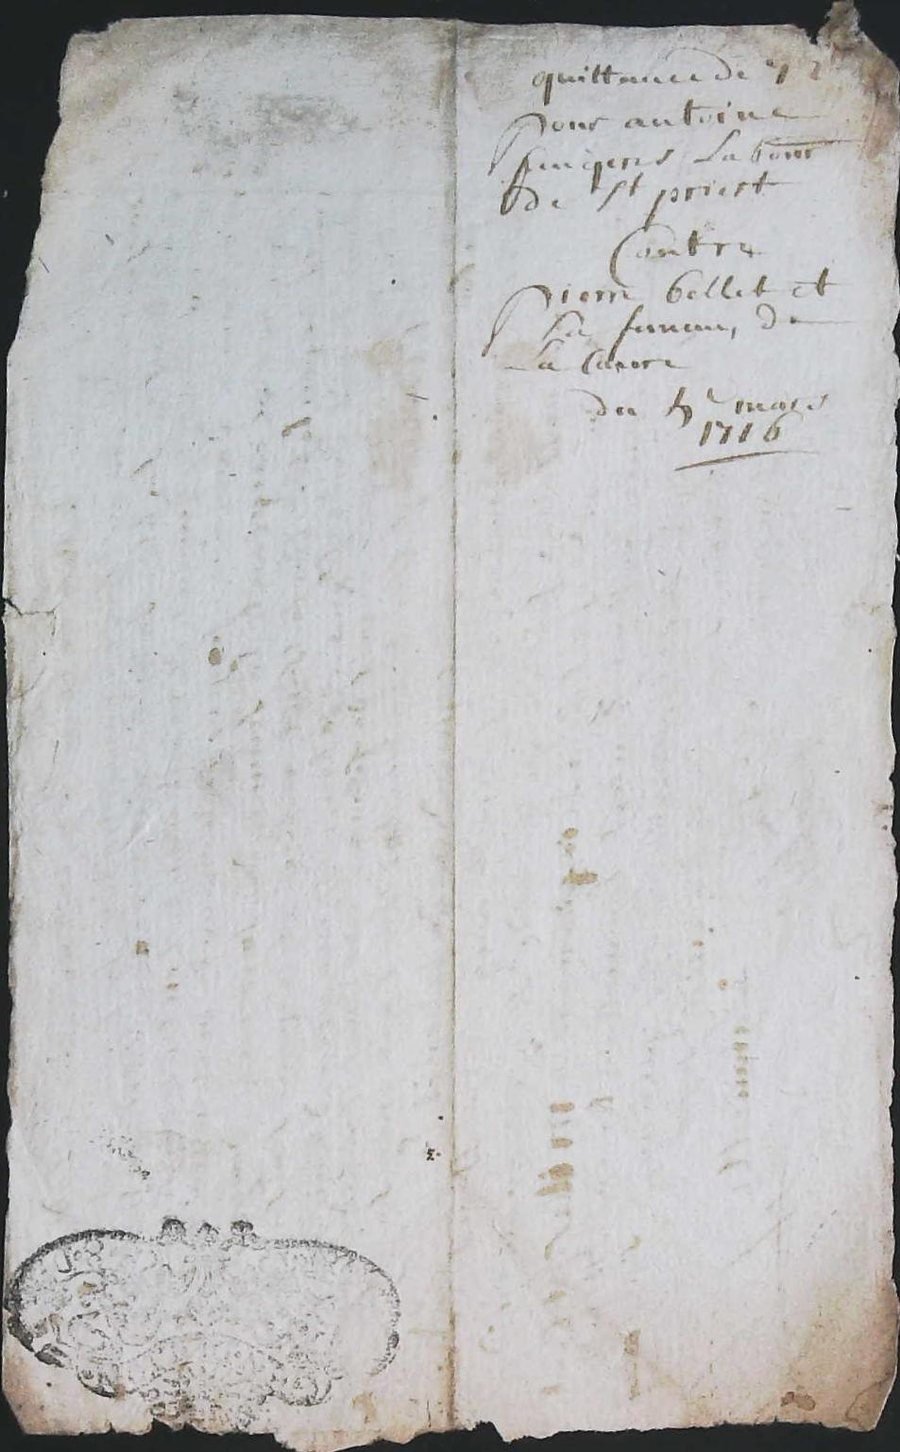 quittance de
pour antoine
Labour
de St priest
Contre
pierre bellet et
Sa femme, de
La
du mars
1716